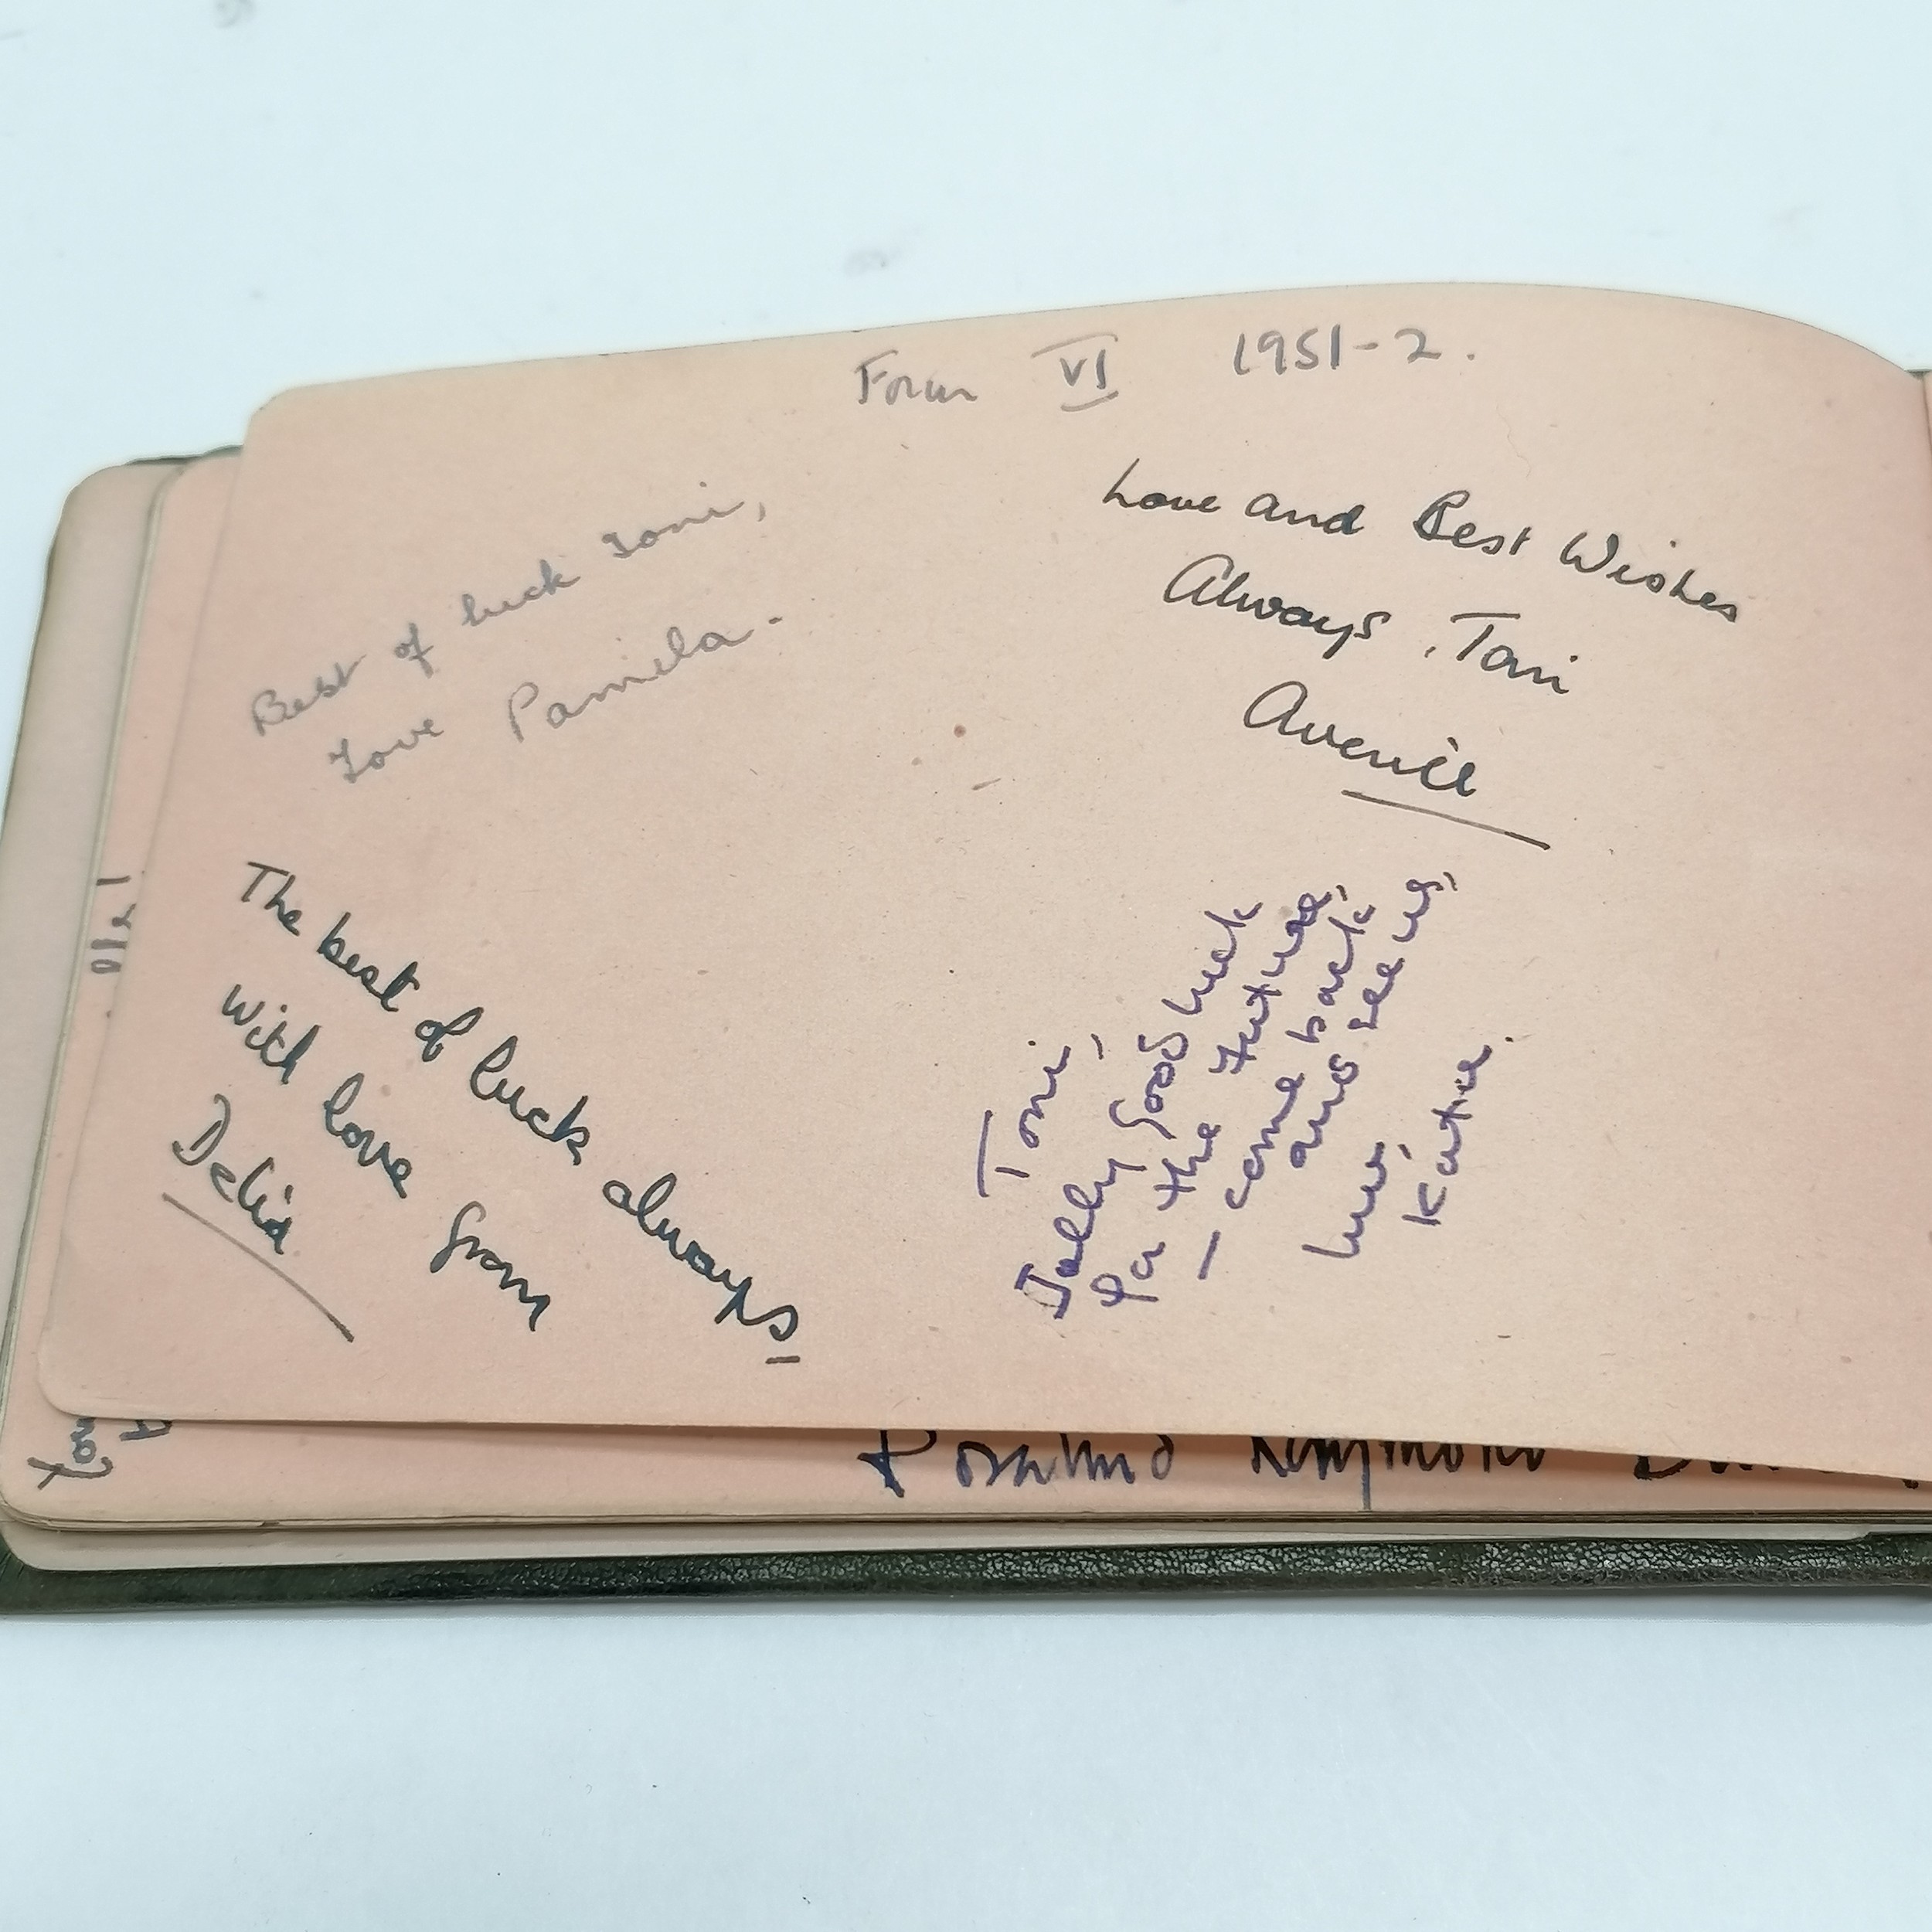 Form VI 1951-2.
Best of luck Toni,
Love Pamela.
Love and Best Wishes
Always, Toni
Averill
The best of luck always
with love from
Delia
Toni,
Jolly good luck
for the future,
— come back
and see us,
Luv,
Katie.
Rosalind Raymond